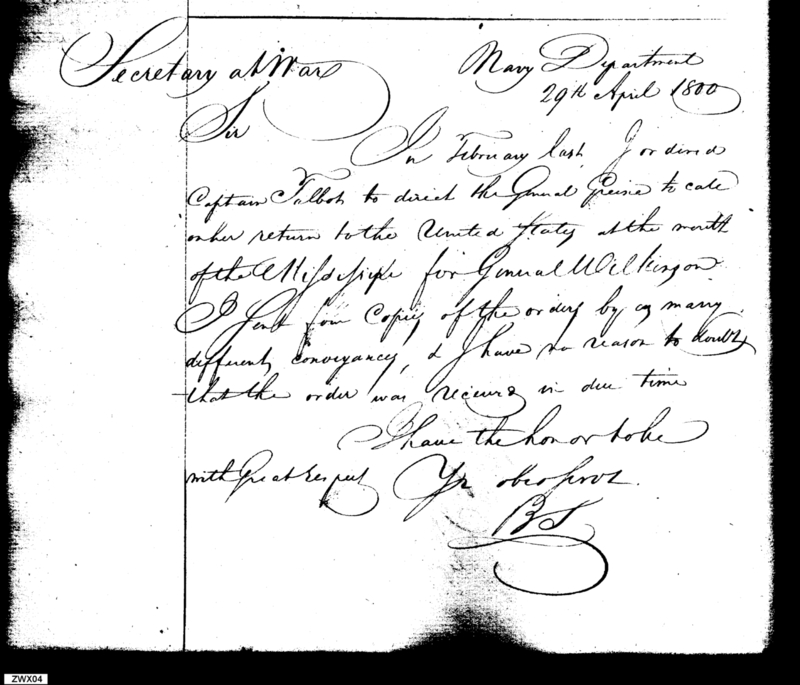 Secretary at War
Navy Department
29th April 1800
Sir
In February last I ordered
Captain Talbot to direct the General Greene to call
on her return to the United States at the mouth
of the Missisippi for General Wilkinson.
I sent four Copies of the orders by as many
different conveyances, & I have no reason to doubt
that the order was received in due time
I have the honor to be
with great respect Yr obed servt.
BS
ZWX04